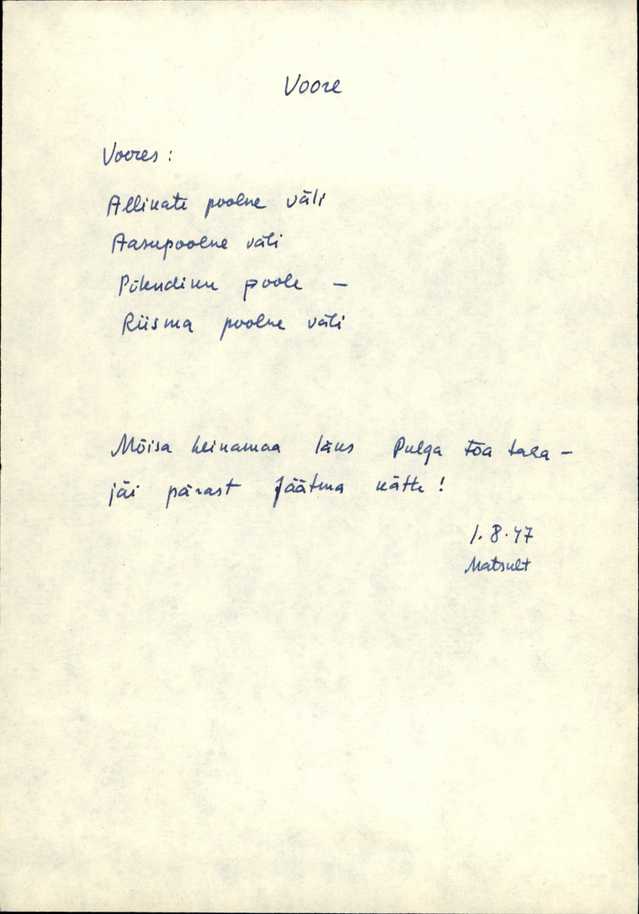 Voore
Voores:
Allikate poolne väli
Aasupoolne väli
Põhendiku poole –
Riisma poolne väli
Mõisa heinamaa läks Pulga Tõa
jäi pärast Jäätma kätte!
1.8.47
Matsult